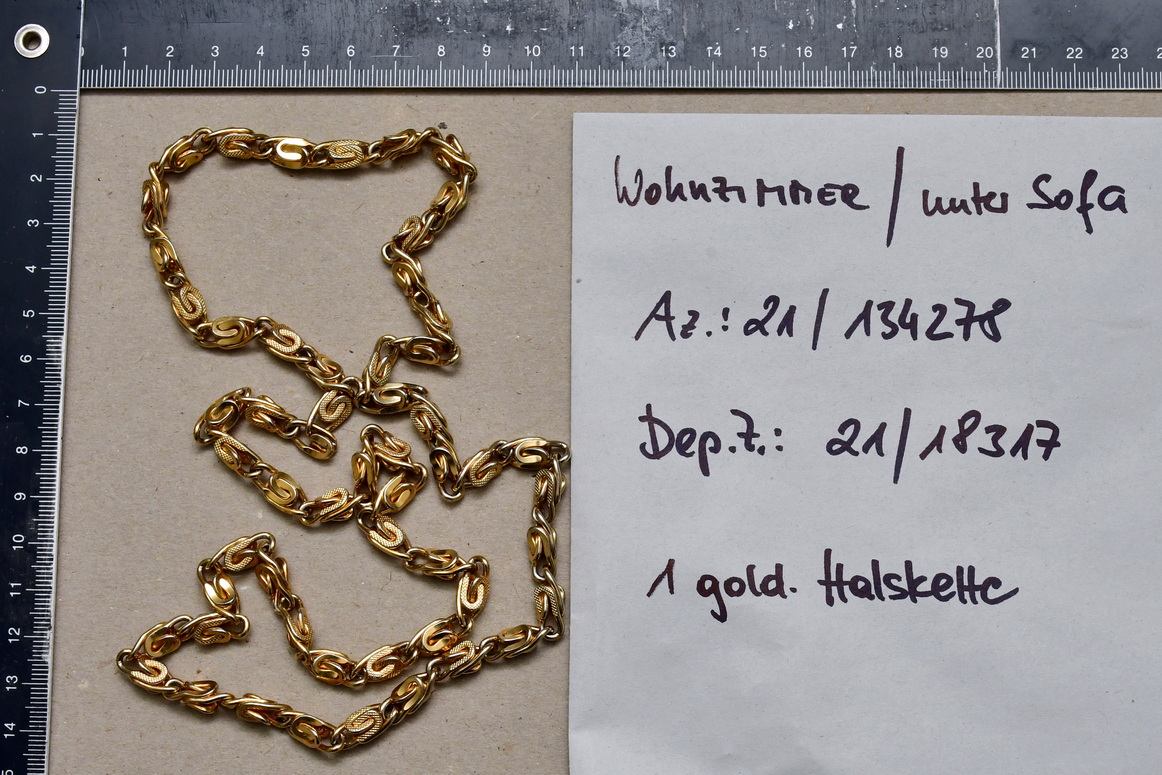 1 2 3 4 5 6 7 8 9 10 11 12 13 14 15 16 17 18 19 20 21 22 23
0
1
2
3
4
5
6
7
8
9
10
11
12
13
14
Wohnzimmer / unter Sofa
Az.: 21 / 134278
Dep.Z.: 21/18317
1 gold. Halskette